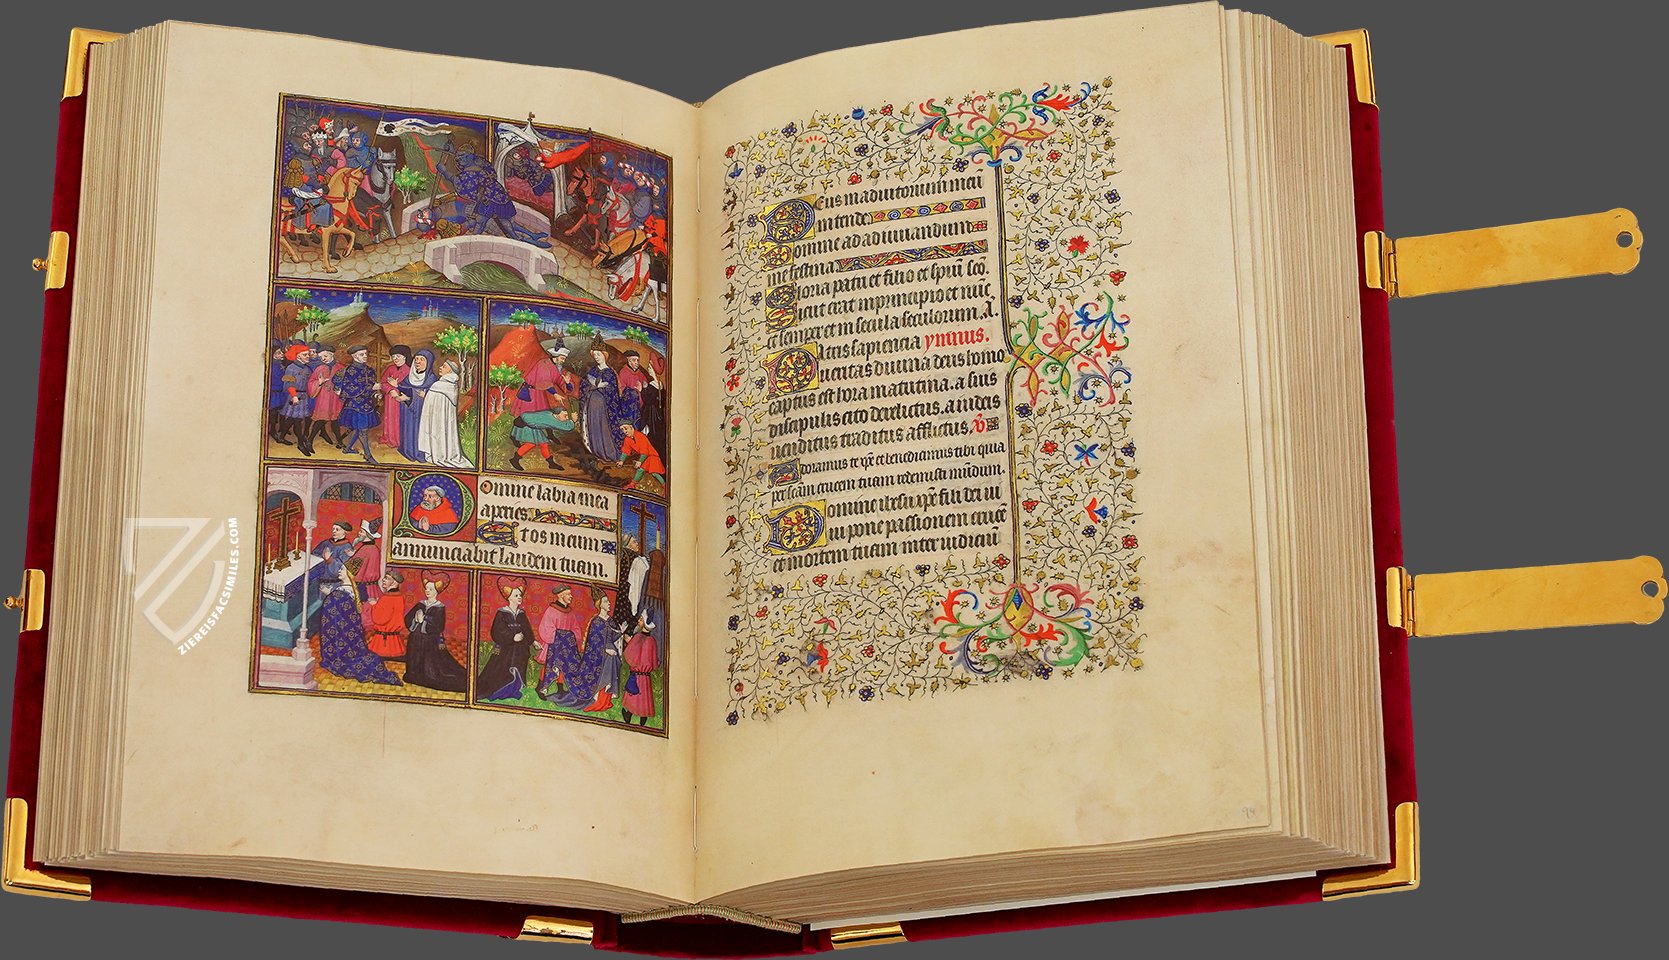 Omine labia mea
aperies
Et os meum
annunciabit laudem tuam.
Eus in adiutorium meū
intende
Domine ad adiuuandum
me festina
Gloria patri et filio et spūi scō.
Sicut erat in principio et nūc
et semper et in secula seculorum. A.
Patris sapiencia ymnus.
ueritas diuina deus homo
captus est hora matutina. a suis
discipulis cito derelictus. a iudeis
uenditus traditus afflictus. v̄
Adoramus te xp̄e et benedicimus tibi quia
per scām crucem tuam redemisti mūdum.
Domine ihesu xp̄e fili dei ui
ui pone passionem crucē
et mortem tuam inter iudiciū
94
ZIEREISFACSIMILES.COM